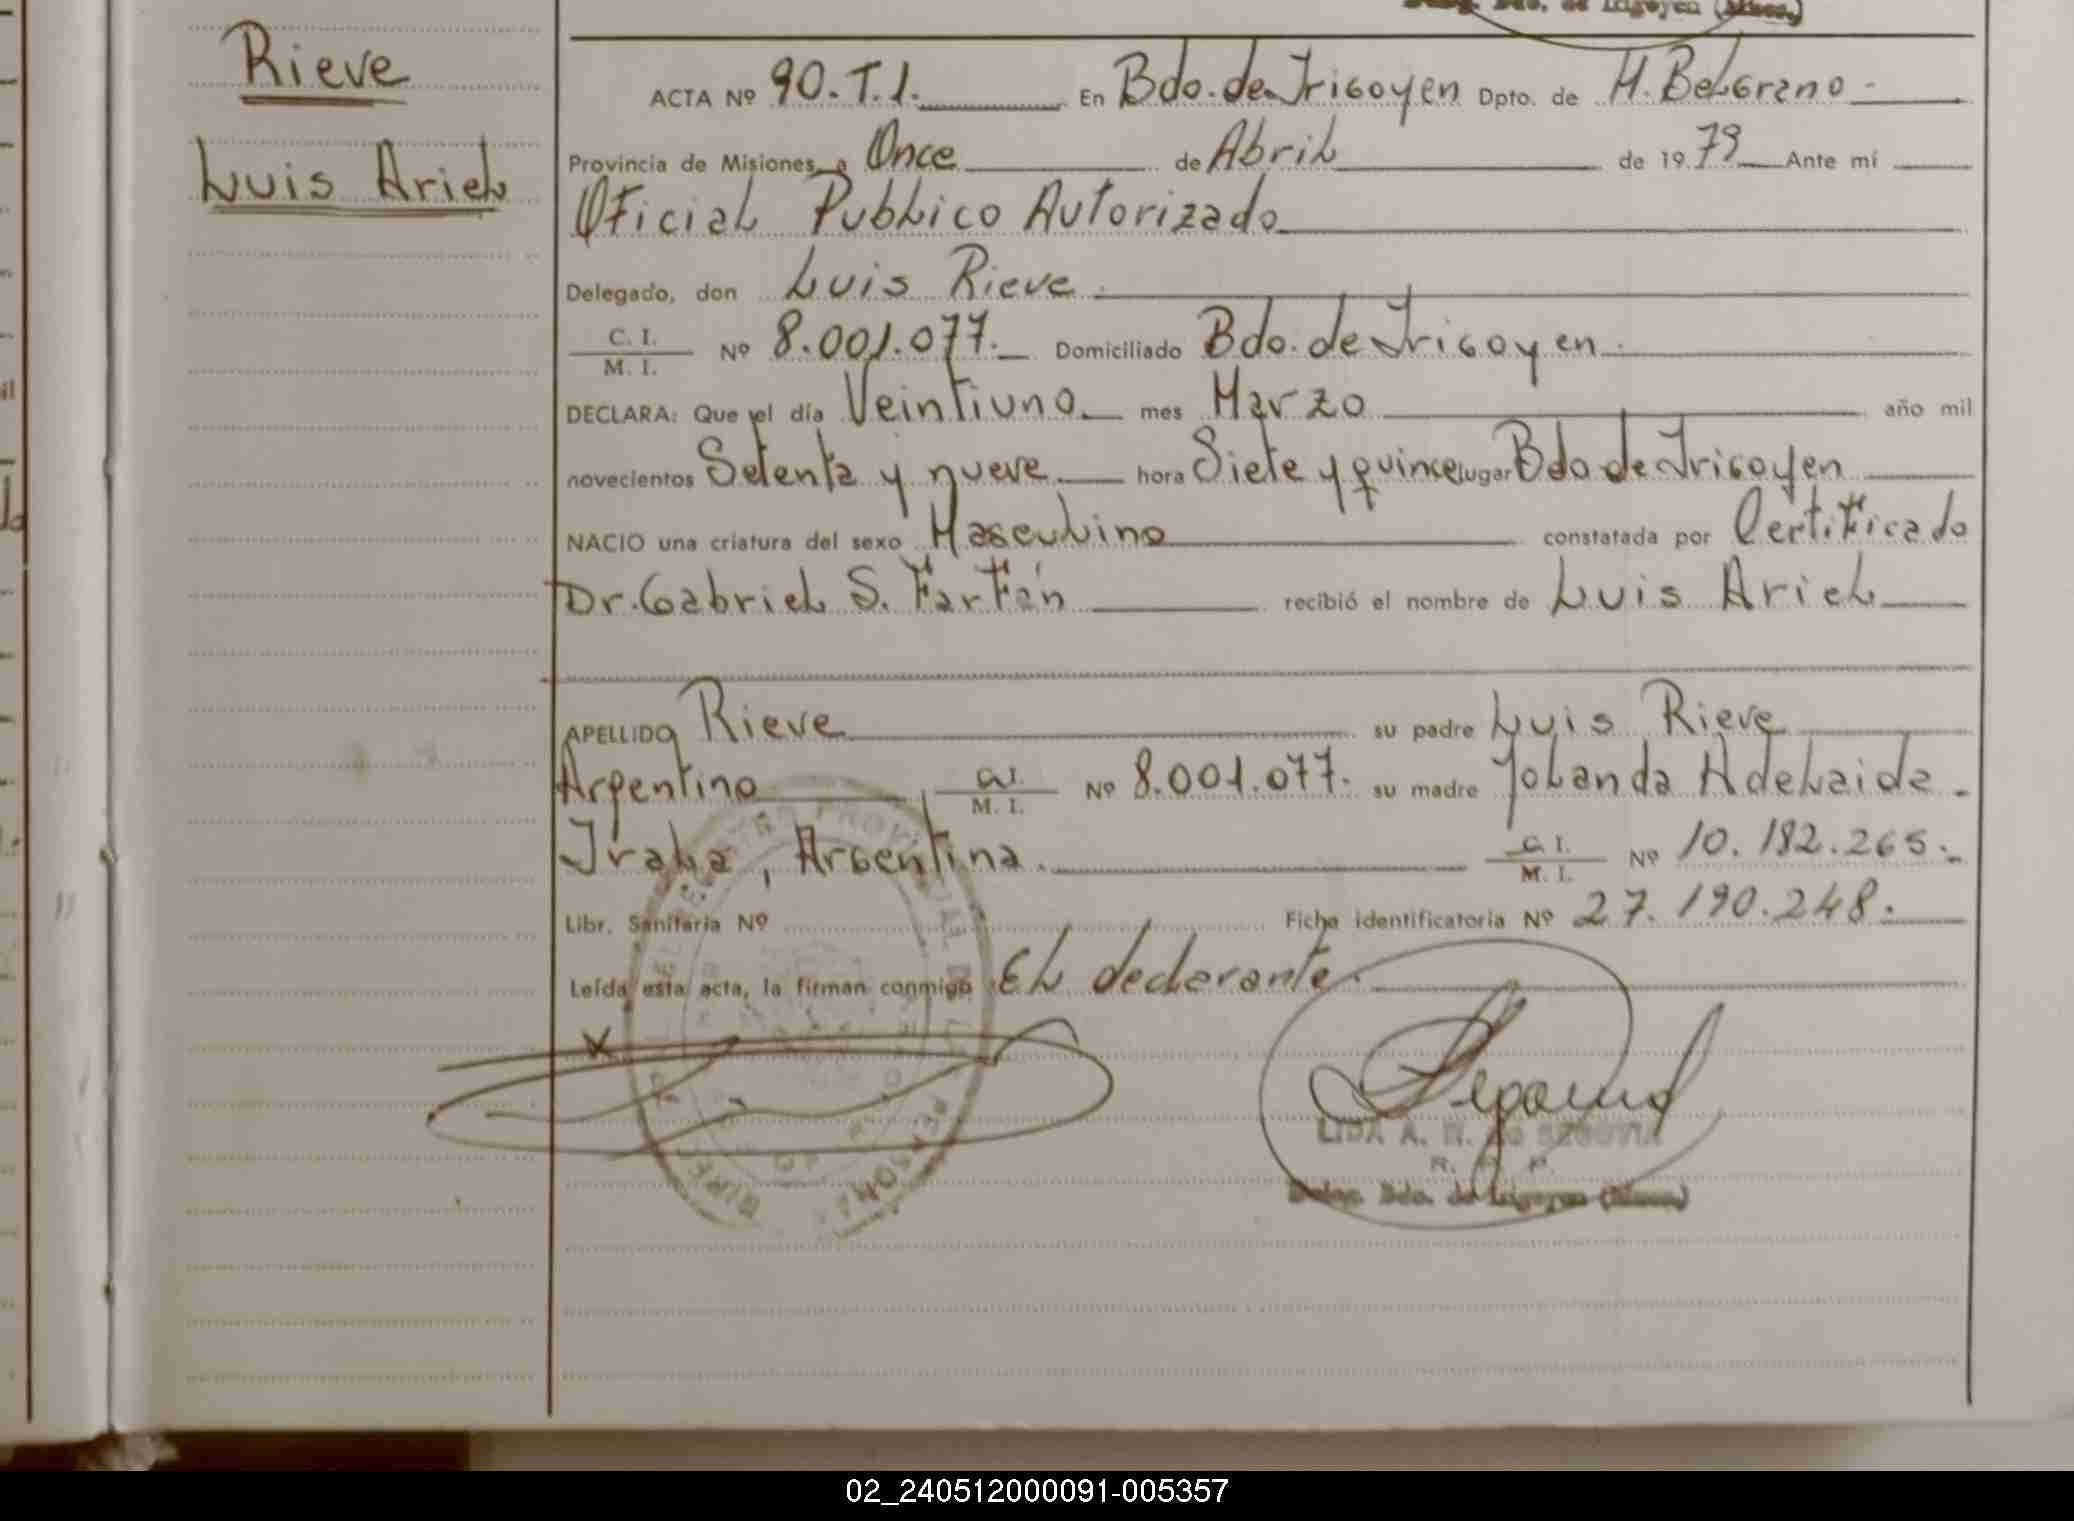 Rieve
Luis Ariel
ACTA Nº 90.T.1. En Bdo. de Irigoyen Dpto. de M. Belgrano -
Provincia de Misiones, a Once de Abril de 1979 Ante mí
Oficial Publico Autorizado
Delegado, don Luis Rieve.
C. I.
M. I.
Nº 8.001.077. Domiciliado Bdo. de Irigoyen.
DECLARA: Que el día Veintiuno mes Marzo año mil
novecientos Setenta y nueve hora Siete y quince lugar Bdo de Irigoyen
NACIO una criatura del sexo Masculino constatada por Certificado
Dr. Gabriel S. Farfán recibió el nombre de Luis Ariel
APELLIDO Rieve su padre Luis Rieve
Argentino C.I.
M. I.
Nº 8.001.077. su madre Yolanda Adelaida -
Irala, Argentina. C.I.
M. I.
Nº 10.182.265.-
Libr. Sanitaria Nº Ficha identificatoria Nº 27.190.248.
Leída esta acta, la firman conmigo El declarante.
X
LIDA A. R. de SEGOVIA
Deleg. Bdo. de Irigoyen (Mnes.)
02_240512000091-005357